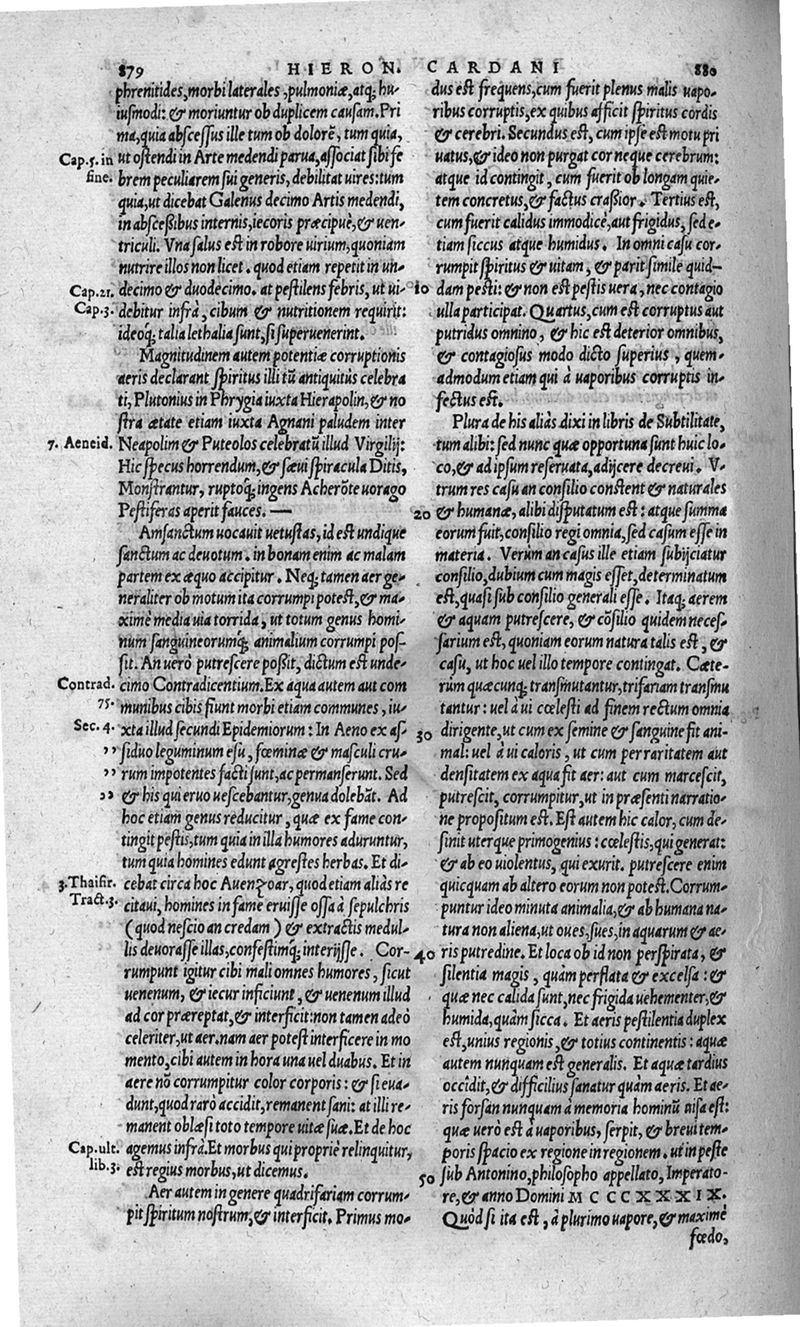 879 HIERON. CARDANI 880
phrenitides, morbi laterales, pulmoniæ, atq; hu-
iusmodi: & moriuntur ob duplicem causam. Pri
ma, quia abscessus ille tum ob dolorē, tum quia,
Cap. 5. in
fine.
ut ostendi in Arte medendi parua, associat sibi fe
brem peculiarem sui generis, debilitat uires: tum
quia, ut dicebat Galenus decimo Artis medendi,
in abscessibus internis, iecoris præcipuè, & uen-
triculi. Vna salus est in robore uirium, quoniam
nutrire illos non licet. quod etiam repetit in un-
Cap. 21.
Cap. 3.
decimo & duodecimo. at pestilens febris, ut ui-
debitur infrà, cibum & nutritionem requirit:
ideoq; talia lethalia sunt, si superuenerint.
Magnitudinem autem potentiæ corruptionis
aeris declarant spiritus illi tū antiquitùs celebra
ti, Plutonius in Phrygia iuxta Hierapolin, & no
stra ætate etiam iuxta Agnani paludem inter
7. Aeneid.
Neapolim & Puteolos celebratū illud Virgilij:
Hic specus horrendum, & sæui spiracula Ditis,
Monstrantur, ruptoq; ingens Acherōte uorago
Pestiferas aperit fauces. —
Amsanctum uocauit uetustas, id est undique
sanctum ac deuotum. in bonam enim ac malam
partem ex æquo accipitur. Neq; tamen aer ge-
neraliter ob motum ita corrumpi potest, & ma-
ximè media uia torrida, ut totum genus homi-
num sanguineorumq; animalium corrumpi pos-
sit. An uerò putrescere possit, dictum est unde-
Contrad.
75.
cimo Contradicentium. Ex aqua autem aut com
munibus cibis fiunt morbi etiam communes, iu-
Sec. 4.
xta illud secundi Epidemiorum: In Aeno ex as-
,, siduo leguminum esu, fœminæ & masculi cru-
,, rum impotentes facti sunt, ac permanserunt. Sed
,, & his qui eruo uescebantur, genua dolebāt. Ad
hoc etiam genus reducitur, quæ ex fame con-
tingit pestis, tum quia in illa humores aduruntur,
tum quia homines edunt agrestes herbas. Et di-
3. Thaisir.
Tract. 3.
cebat circa hoc Auenzoar, quod etiam aliàs re
citaui, homines in fame eruisse ossa à sepulchris
(quod nescio an credam) & extractis medul-
lis deuorasse illas, confestimq; interijsse. Cor-
rumpunt igitur cibi mali omnes humores, sicut
uenenum, & iecur inficiunt, & uenenum illud
ad cor præreptat, & interficit: non tamen adeò
celeriter, ut aer. nam aer potest interficere in mo
mento, cibi autem in hora una uel duabus. Et in
aere nō corrumpitur color corporis: & si eua-
dunt, quod rarò accidit, remanent sani: at illi re-
manent oblæsi toto tempore uitæ suæ. Et de hoc
Cap. ult.
lib. 3.
agemus infrà. Et morbus qui propriè relinquitur,
est regius morbus, ut dicemus.
Aer autem in genere quadrifariam corrum-
pit spiritum nostrum, & interficit. Primus mo-
dus est frequens, cum fuerit plenus malis uapo-
ribus corruptis, ex quibus afficit spiritus cordis
& cerebri. Secundus est, cum ipse est motu pri
uatus, & ideo non purgat cor neque cerebrum:
atque id contingit, cum fuerit ob longam quie-
tem concretus, & factus crassior. Tertius est,
cum fuerit calidus immodicè, aut frigidus, sed e-
tiam siccus atque humidus. In omni casu cor-
rumpit spiritus & uitam, & parit simile quid-
10 dam pesti: & non est pestis uera, nec contagio
ulla participat. Quartus, cum est corruptus aut
putridus omnino, & hic est deterior omnibus,
& contagiosus modo dicto superius, quem-
admodum etiam qui à uaporibus corruptis in-
fectus est.
Plura de his aliàs dixi in libris de Subtilitate,
tum alibi: sed nunc quæ opportuna sunt huic lo-
co, & ad ipsum reseruata, adijcere decreui. V-
trum res casu an consilio constent & naturales
20 & humanæ, alibi disputatum est: atque summa
eorum fuit, consilio regi omnia, sed casum esse in
materia. Verùm an casus ille etiam subijciatur
consilio, dubium cum magis esset, determinatum
est, quasi sub consilio generali esse. Itaq; aerem
& aquam putrescere, & cōsilio quidem neces-
sarium est, quoniam eorum natura talis est, &
casu, ut hoc uel illo tempore contingat. Cæte-
rum quæcunq; transmutantur, trifariam transmu
tantur: uel à ui cœlesti ad finem rectum omnia
30 dirigente, ut cum ex semine & sanguine fit ani-
mal: uel à ui caloris, ut cum per raritatem aut
densitatem ex aqua fit aer: aut cum marcescit,
putrescit, corrumpitur, ut in præsenti narratio-
ne propositum est. Est autem hic calor, cum de-
sinit uterque primogenius: cœlestis, qui generat:
& ab eo uiolentus, qui exurit. putrescere enim
quicquam ab altero eorum non potest. Corrum-
puntur ideo minuta animalia, & ab humana na-
tura non aliena, ut oues, sues, in aquarum & ae-
40 ris putredine. Et loca ob id non perspirata, &
silentia magis, quàm perflata & excelsa: &
quæ nec calida sunt, nec frigida uehementer, &
humida, quàm sicca. Et aeris pestilentia duplex
est, unius regionis, & totius continentis: aquæ
autem nunquam est generalis. Et aquæ tardius
occîdit, & difficilius sanatur quàm aeris. Et ae-
ris forsan nunquam à memoria hominū uisa est:
quæ uerò est à uaporibus, serpit, & breui tem-
poris spacio ex regione in regionem. ut in peste
50 sub Antonino, philosopho appellato, Imperato-
re, & anno Domini M C C C X X X I X.
Quòd si ita est, à plurimo uapore, & maximè
fœdo,